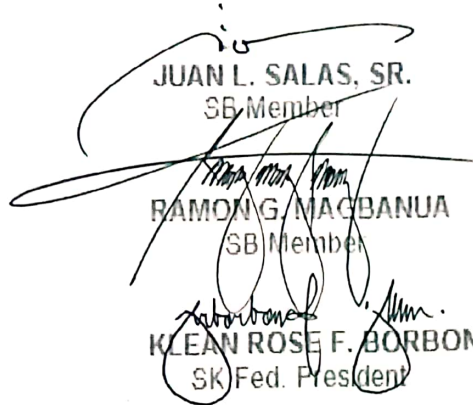 JUAN L. SALAS, SR.
SB Member
RAMON G. MAGBANUA
SB Member
KLEAN ROSE F. BORBON
SK Fed. President